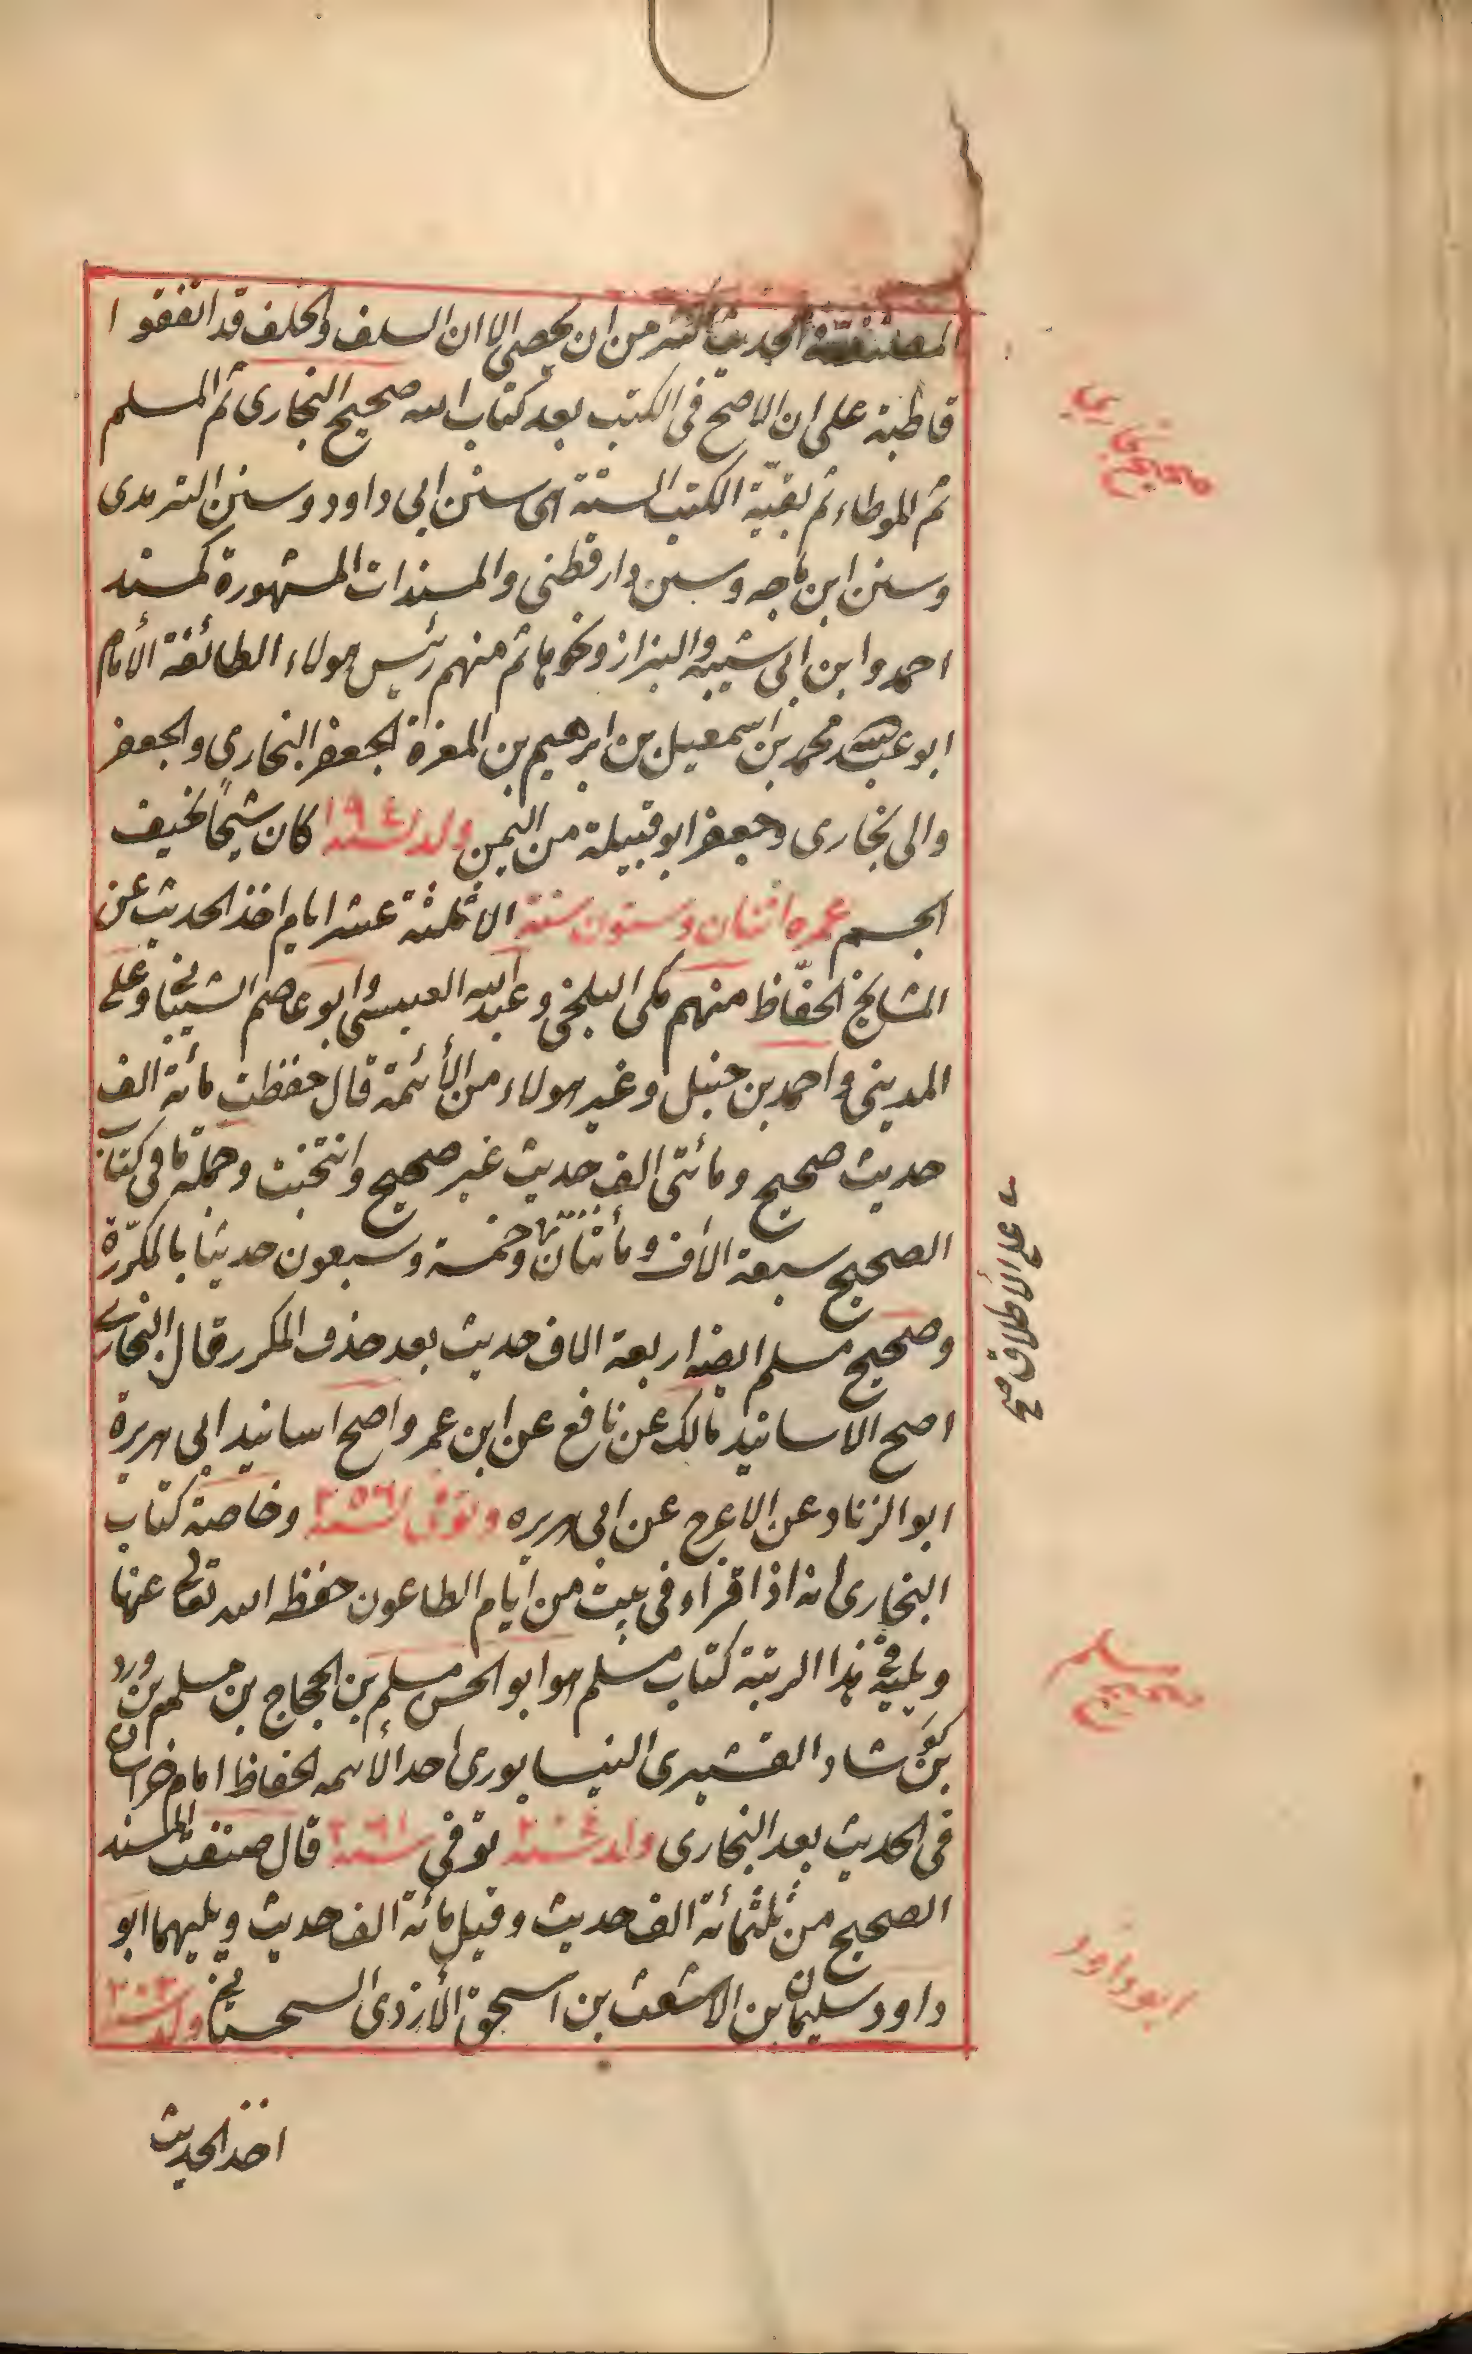 المصنفة فى الحديث اكثر من ان يحصى الا ان السلف والخلف قد اتفقوا
قاطبة على ان الاصح فى الكتب بعد كتاب الله صحيح البخارى ثم المسلم
ثم للموطاء ثم بقيّة الكتب الستة اى سنن ابى داود وسنن الترمدى
وسنن ابن ماجه وسنن دارقطنى والمسندات المشهورة كمسند
احمد وابن ابى شيبه والبزاز ونحوها ثم منهم رئيس هولاء الطائفة الأمام
ابو عبد الله محمد بن اسمعيل بن ابرهيم بن المغرة الجعفر البخارى والجعفر
والى بخارى وجعفر ابو قبيلة من اليمن ولد سنة ١٩٤ كان شيخاً نحيف
الجسم عمره اثنان وستون سنة الا ثلثة عشر ايام اخذ الحديث عن
المشايخ الحفّاظ منهم مكى البلخى وعبد الله العبسى وابو عاصم الشيبانى وعلى
المدينى واحمد بن حنبل وغير هولاء من الأئمة قال حفظت مائة الف
حديث صحيح ومائتى الف حديث غير صحيح وانتخبت وجملة ما فى كتاب
الصحيح سبعة الأف ومأتتان وخمسة وسبعون حديثا بالمكرّرة
وصحيح مسلم ايضا اربعة الاف حديث بعد حذف المكرر قال البخارى
اصح الاسانيد مالك عن نافع عن ابن عمر واصح اسانيد ابى هريرة
ابو الزناد عن الاعرج عن ابى هريره وتوفى سنة ٢٥٦ وخاصة كتاب
البخارى انه اذا قراء فى بيت من ايام الطاعون حفظه الله تعالى عنها
ويليه فى هذا الرتبة كتاب مسلم هو ابو الحسن مسلم بن الحجاج بن مسلم بن ورد
بن كوشاد القشيرى النيسابورى احد الأئمه الحفاظ امام خراسان
فى الحديث بعد البخارى ولد سنة ٢٠٤ توفى سنة ٢٦١ قال صنفت المسند
الصحيح من ثلثمائة الف حديث وقيل مائة الف حديث ويليهما ابو
داود سليمان بن الاشعث بن اسحق الأزدى السجستانى ولد سنة ٢٠٢
اخذ الحديث
صحيح بخارى
على الأطلاق صح
صحيح مسلم
ابو داود